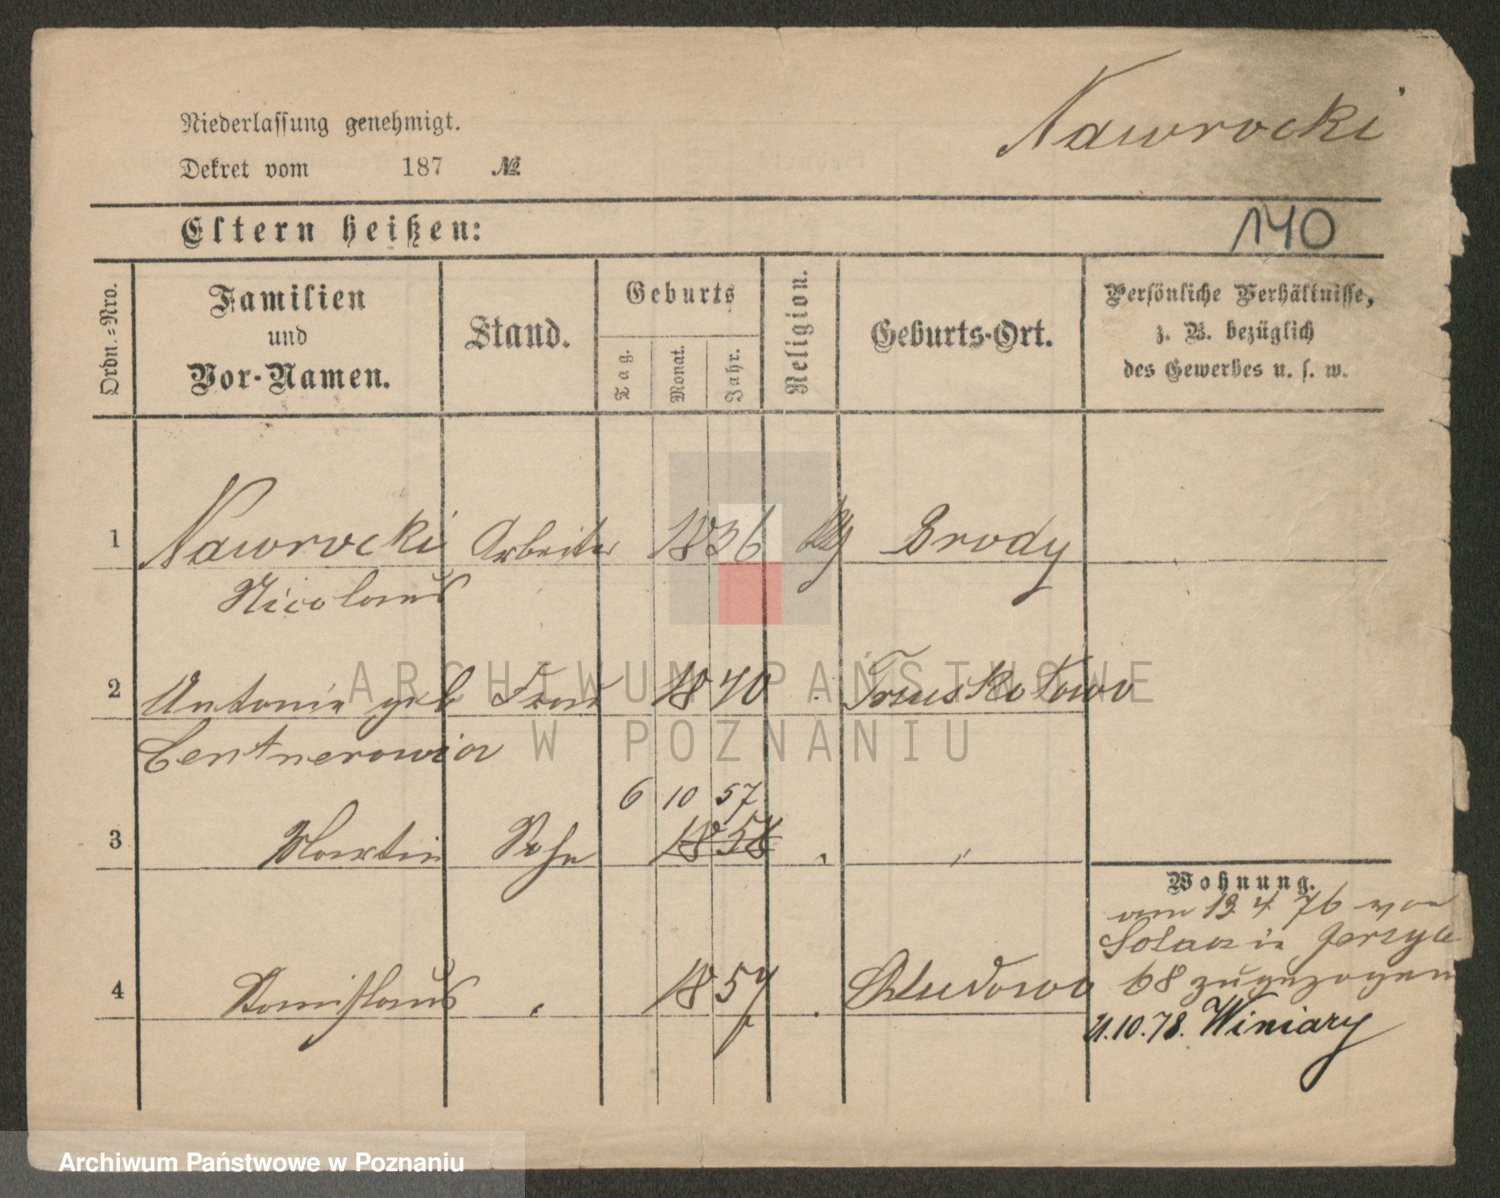 Nawrocki
Niederlassung genehmigt.
Dekret vom 187 №
Eltern heißen:
140
Ordn.-Nro.
Familien
und
Vor-Namen.
Stand.
Geburts
Tag.
Monat.
Jahr.
Religion.
Geburts-Ort.
Persönliche Verhältnisse,
z. B. bezüglich
des Gewerbes u. s. w.
1 Nawrocki Arbeiter 1836 Brody
Nicolaus
2 Antonie geb Frau 1840 Truskotowo
Centnerowicz
6 10 57
3 Martin Sohn 1858 " "
Wohnung.
am 13 4 76 von
Solacz in Jerzyce
68 zugezogen
4 Stanislaus " 1857 " Chludowo
11.10.78. Winiary
ARCHIWUM PAŃSTWOWE
W POZNANIU
Archiwum Państwowe w Poznaniu